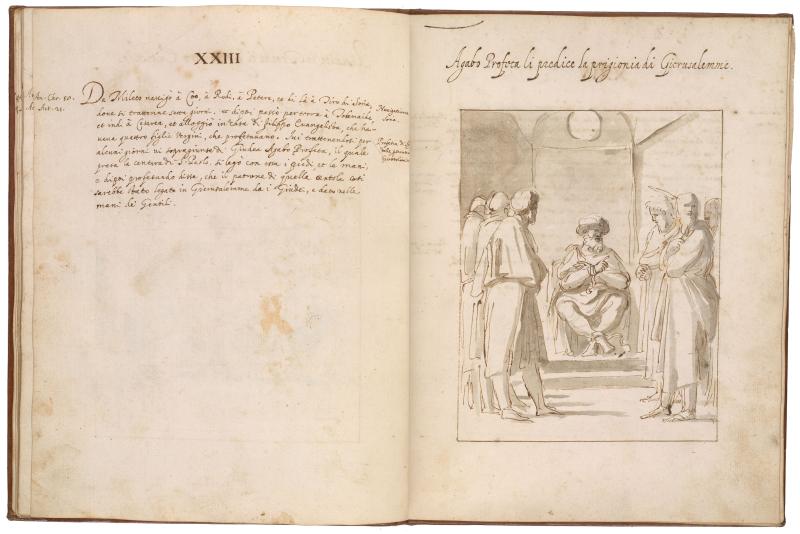 XXIII
An. Chr. 58.
Act. 21.
Da Mileto navigò à Coo, à Rodi, à Patara, et di là à Tiro di Soria,
dove si trattenne sette giorni. et dipoi passò per terra à Tolemaide,
et indi à Cesarea, et alloggiò in casa di filippo Evangelista, che ha-
veva quattro figlie Vergini, che profetavano. Ivi trattenendosi per
alcuni giorni vi sopragiunse di Giudea Agabo Profeta, il quale
presa la centura di S. Paolo, si legò con essa i piedi et le mani,
e dipoi profetando disse, che il patrone di quella centola così
sarebbe stato legato in Gierusalemme da i Giudei, e dato nelle
mani de Gentili.
Navigatione
Profetia di
Gierusalemme
Agabo Profeta li predice la prigionia di Gierusalemme.